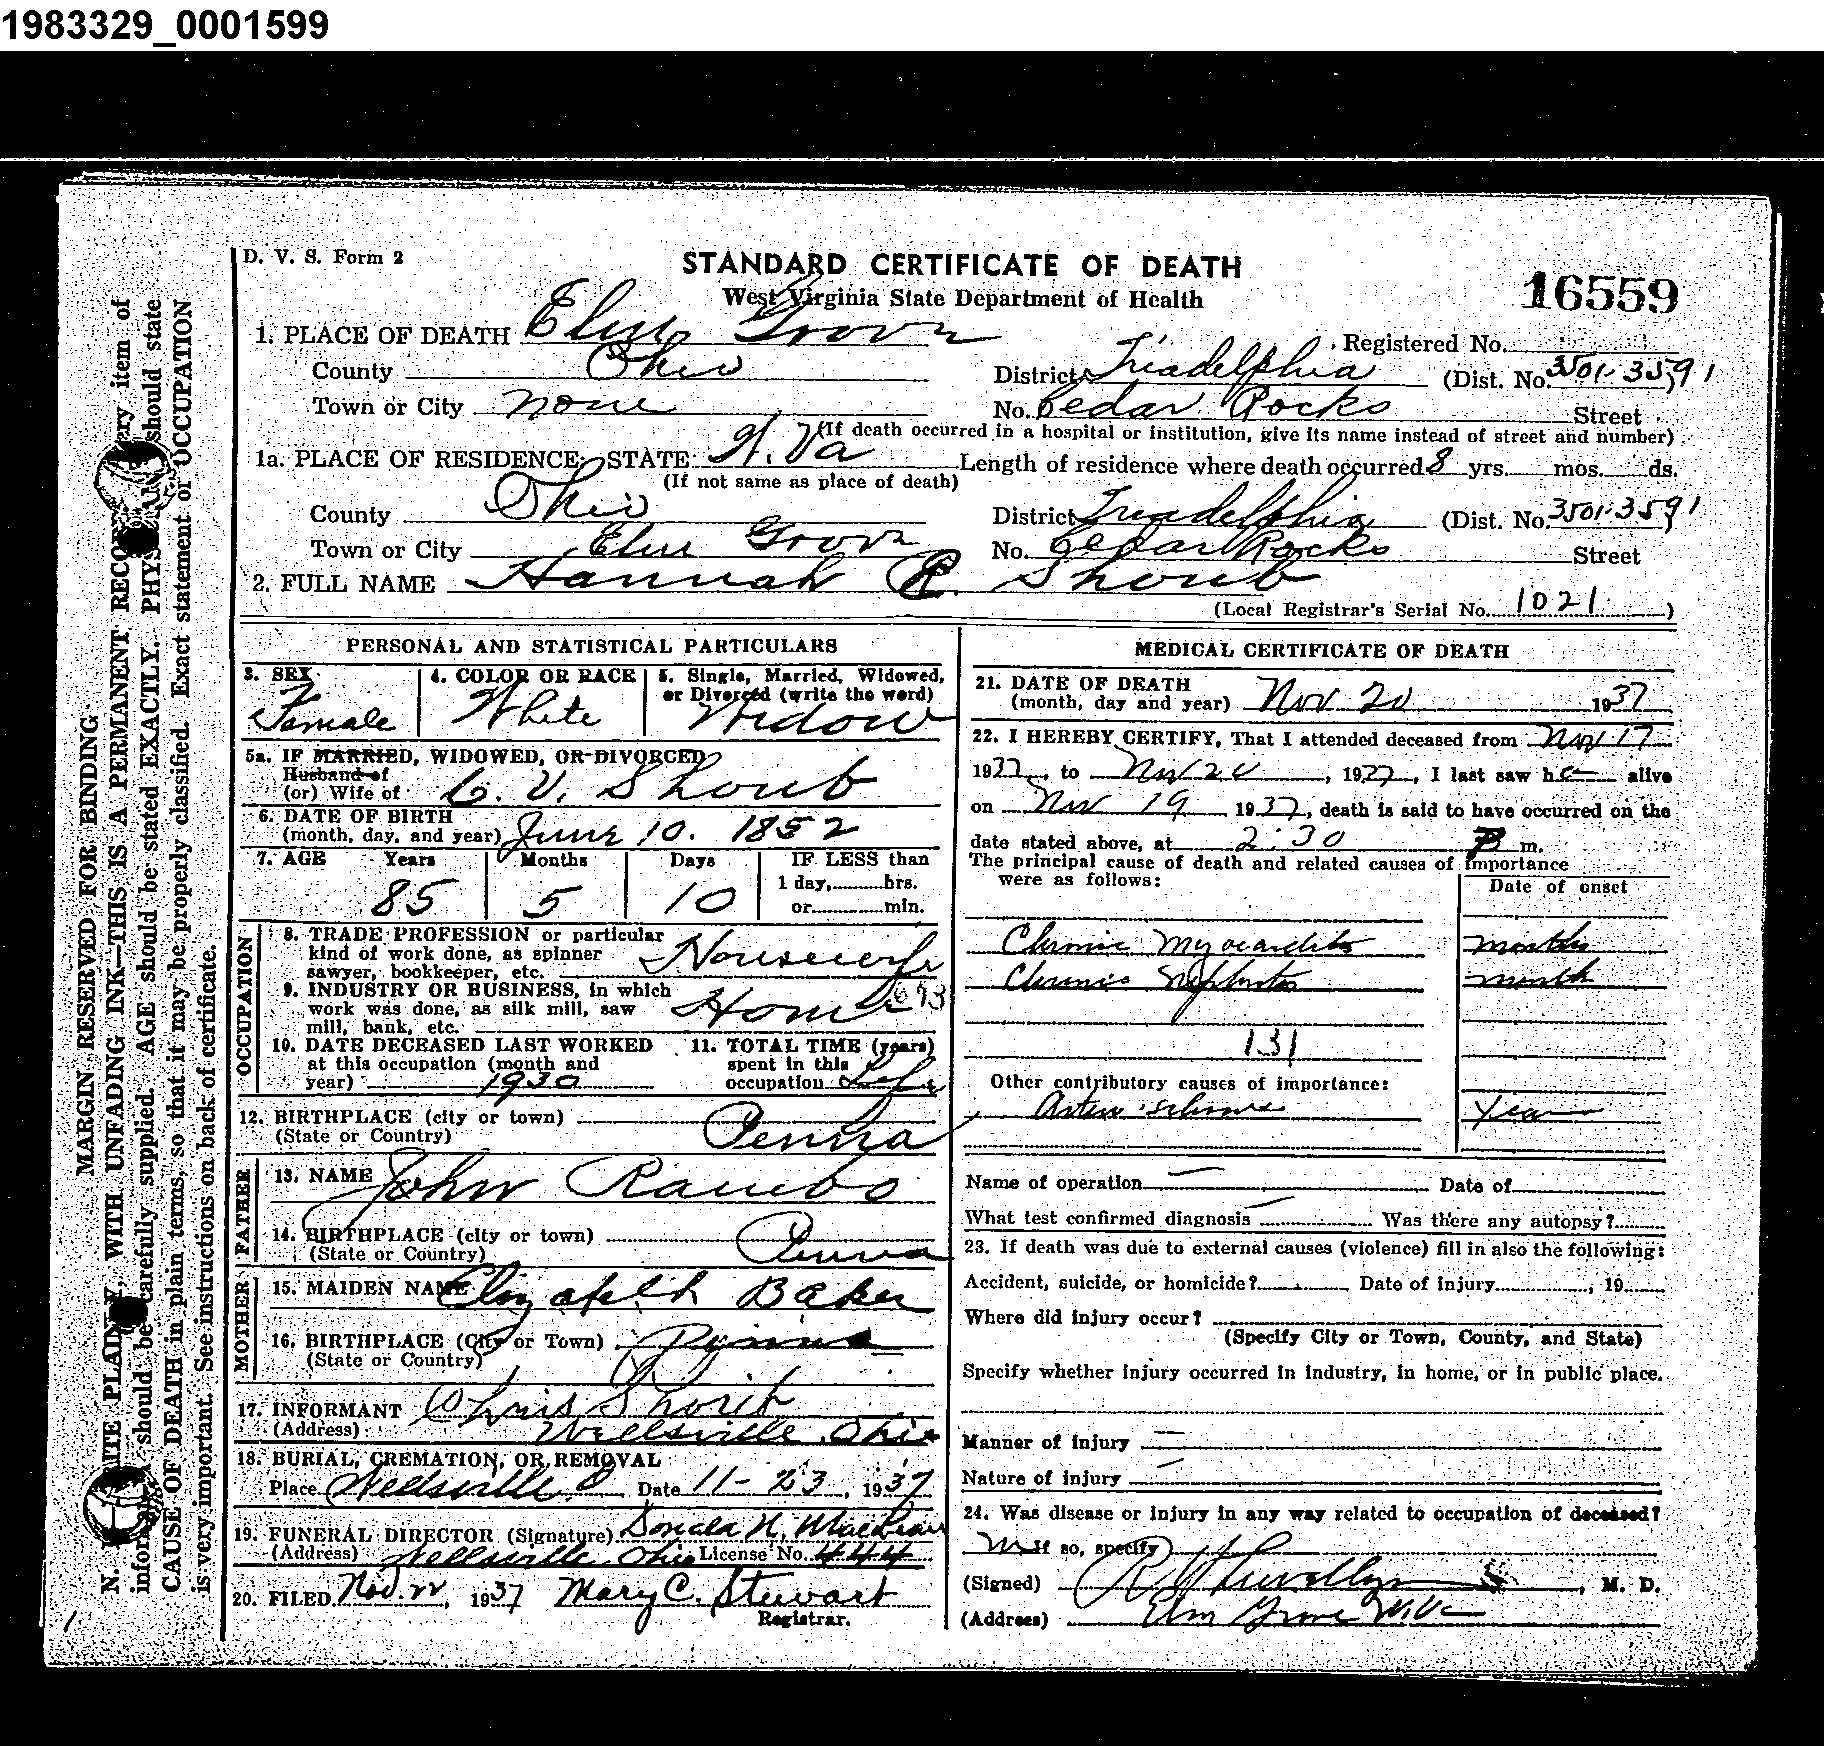 1983329_0001599
D. V. S. Form 2
STANDARD CERTIFICATE OF DEATH
West Virginia State Department of Health
16559
1. PLACE OF DEATH Elm Grove
Registered No.
County Ohio District Triadelphia (Dist. No. 3501-3591)
Town or City None No. Cedar Rocks Street
(If death occurred in a hospital or institution, give its name instead of street and number)
1a. PLACE OF RESIDENCE: STATE W. Va Length of residence where death occurred 8 yrs. mos. ds.
(If not same as place of death)
County Ohio District Triadelphia (Dist. No. 3501-3591
Town or City Elm Grove No. Cedar Rocks Street
2. FULL NAME Hannah R. Shoub
(Local Registrar's Serial No. 1021 )
PERSONAL AND STATISTICAL PARTICULARS
3. SEX Female
4. COLOR OR RACE White
5. Single, Married, Widowed, or Divorced (write the word) Widow
5a. IF MARRIED, WIDOWED, OR DIVORCED
Husband of
(or) Wife of C. V. Shoub
6. DATE OF BIRTH
(month, day, and year) June 10. 1852
7. AGE Years Months Days IF LESS than
85 5 10 1 day, hrs.
or min.
OCCUPATION
8. TRADE PROFESSION or particular
kind of work done, as spinner
sawyer, bookkeeper, etc. Housewife
9. INDUSTRY OR BUSINESS, in which
work was done, as silk mill, saw
mill, bank, etc. Home
10. DATE DECEASED LAST WORKED
at this occupation (month and
year) 1930
11. TOTAL TIME (years)
spent in this
occupation Life
12. BIRTHPLACE (city or town)
(State or Country) Penna
FATHER
13. NAME John Rambo
14. BIRTHPLACE (city or town)
(State or Country) Penna
MOTHER
15. MAIDEN NAME Elizabeth Baker
16. BIRTHPLACE (City or Town) Penna
(State or Country)
17. INFORMANT Chris Shoub
(Address) Wellsville, Ohio
18. BURIAL, CREMATION, OR REMOVAL
Place Wellsville O Date 11-23, 1937
19. FUNERAL DIRECTOR (Signature) Donald N. MacLean
(Address) Wellsville Ohio License No. 444
20. FILED Nov. 22, 1937 Mary C. Stewart
Registrar.
MEDICAL CERTIFICATE OF DEATH
21. DATE OF DEATH
(month, day and year) Nov 20 1937
22. I HEREBY CERTIFY, That I attended deceased from Nov 17
1937, to Nov 20, 1937, I last saw her alive
on Nov 19 1937, death is said to have occurred on the
date stated above, at 2:30 P m.
The principal cause of death and related causes of importance
were as follows:
Date of onset
Chronic Myocarditis months
Chronic Nephritis month
131
Other contributory causes of importance:
Years
Name of operation — Date of
What test confirmed diagnosis — Was there any autopsy?
23. If death was due to external causes (violence) fill in also the following:
Accident, suicide, or homicide? Date of injury , 19
Where did injury occur?
(Specify City or Town, County, and State)
Specify whether injury occurred in industry, in home, or in public place.
Manner of injury —
Nature of injury —
24. Was disease or injury in any way related to occupation of deceased?
If so, specify
(Signed) , M. D.
(Address) Elm Grove W.Va
MARGIN RESERVED FOR BINDING
PLAINLY, WITH UNFADING INK—THIS IS A PERMANENT RECORD
should be carefully supplied. AGE should be stated EXACTLY. should state
CAUSE OF DEATH in plain terms, so that it may be properly classified. Exact statement of OCCUPATION
is very important. See instructions on back of certificate.